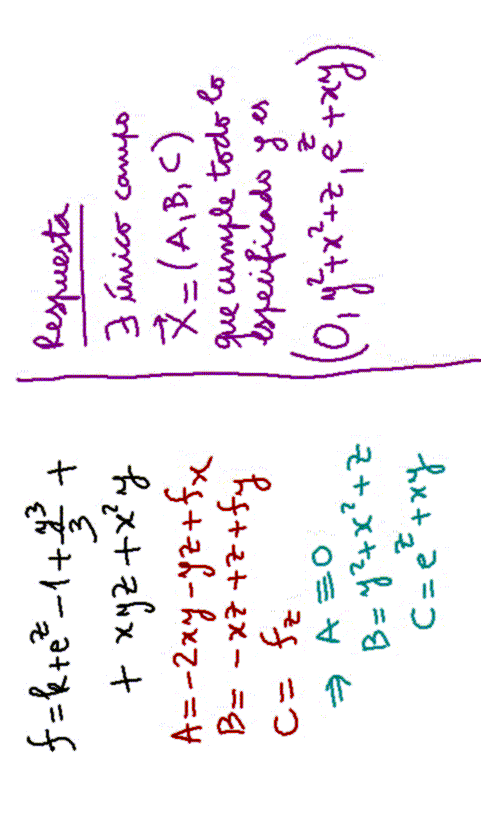 f = k + e^z - 1 + y³/3 +
+ xyz + x²y
A = -2xy - yz + fx
B = -xz + z + fy
C = fz
⇒ A ≡ 0
B = y² + x² + z
C = e^z + xy
Respuesta
∃ único campo
X⃗ = (A, B, C)
que cumple todo lo
especificado y es
(0, y² + x² + z, e^z + xy)